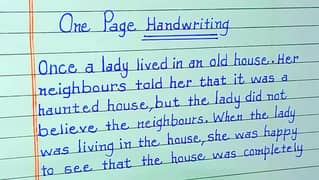 One Page Handwriting
Once a lady lived in an old house. Her
neighbours told her that it was a
haunted house, but the lady did not
believe the neighbours. When the lady
was living in the house, she was happy
to see that the house was completely